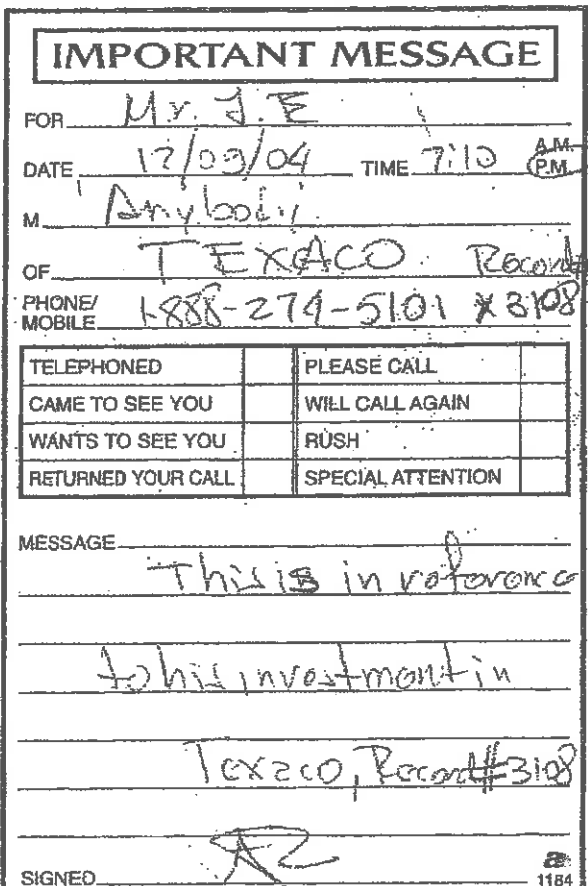 IMPORTANT MESSAGE
FOR Mr. J.E
DATE 12/09/04 TIME 7:10 A.M. P.M.
M Anybody
OF TEXACO Record#
PHONE/MOBILE 1-888-274-5101 x 3108
TELEPHONED PLEASE CALL
CAME TO SEE YOU WILL CALL AGAIN
WANTS TO SEE YOU RUSH
RETURNED YOUR CALL SPECIAL ATTENTION
MESSAGE
This is in reference
to his investment in
Texaco, Record#3108
SIGNED
1184